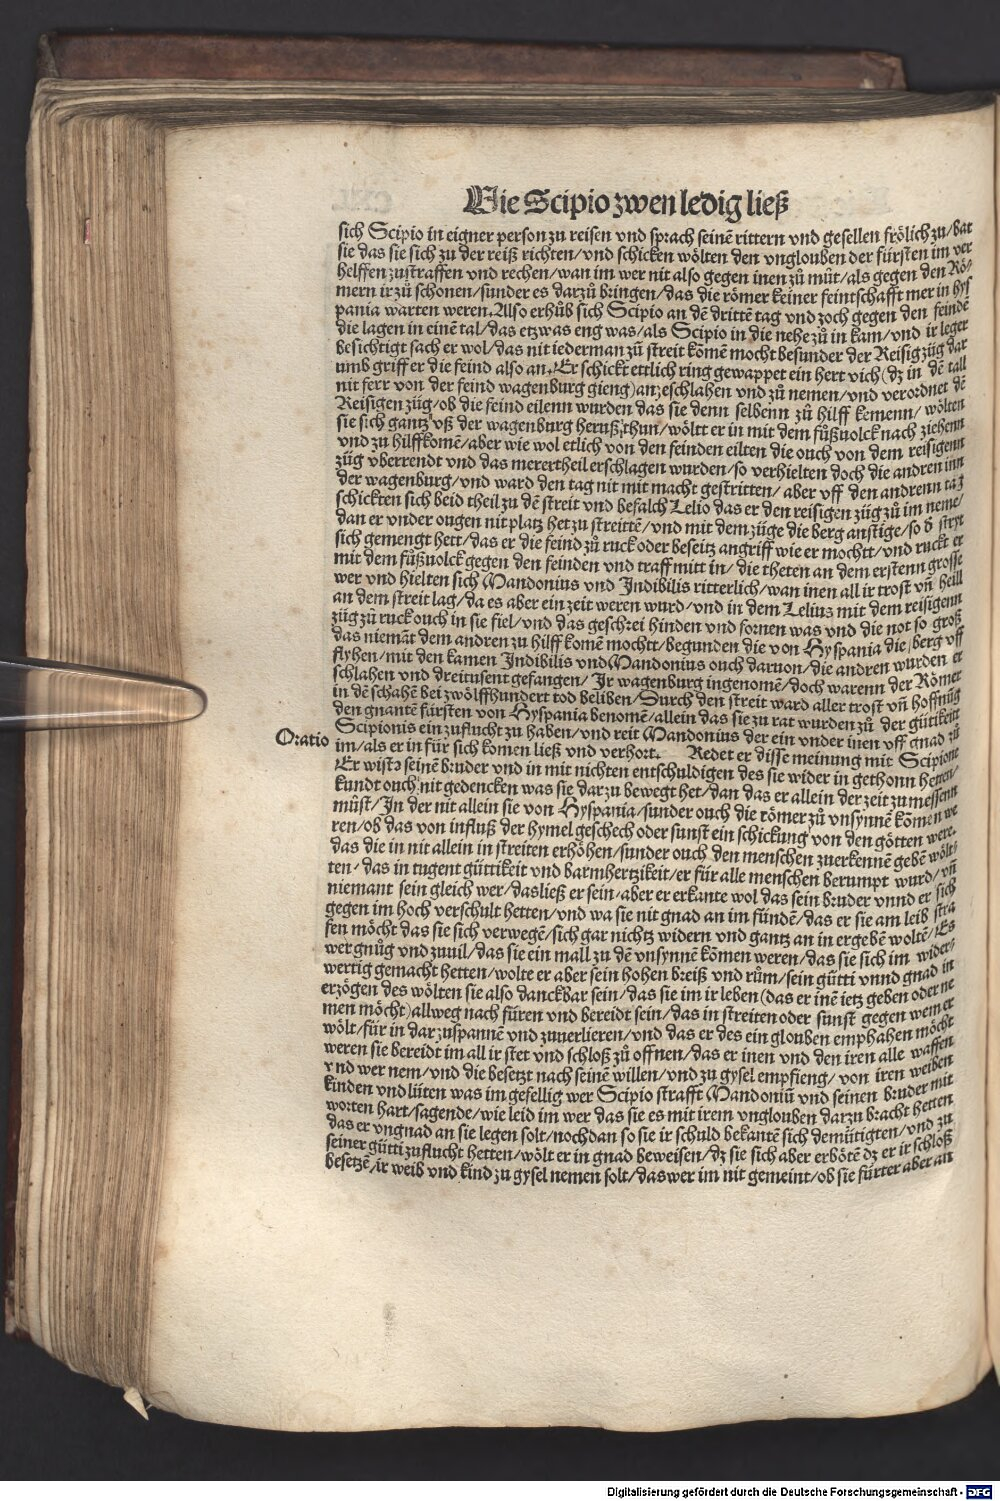 Wie Scipio zwen ledig ließ
sich Scipio in eigner person zu reisen vnd sprach seinē rittern vnd gesellen frölich zu/bat
sie das sie sich zu der reiß richten/vnd schicken wölten den vnglouben der fürsten im ver
helffen zustraffen vnd rechen/wan im wer nit also gegen inen zů můt/als gegen den Rö/
mern ir zů schonen/sunder es darzů bringen/das die römer keiner feintschafft mer in hys
pania warten weren. Also erhůb sich Scipio an dē drittē tag vnd zoch gegen den feindē
die lagen in einē tal/das etzwas eng was/als Scipio in die nehe zů in kam/vnd ir leger
besichtigt sach er wol/das nit iederman zů streit kōmē mocht besunder der Reisig züg dar
umb griff er die feind also an. Er schickt ettlich ring gewappet ein hert vich (dz in dē tall
nit ferr von der feind wagenburg gieng) anzeschlahen vnd zů nemen/vnd verordnet dē
Reisigen züg/ob die feind eilenn wurden das sie denn selbenn zů hilff kemenn/wölten
sie sich gantz vß der wagenburg heruß thun/wöltt er in mit dem fůßuolck nach ziehenn
vnd zu hilffkomē/aber wie wol etlich von den feinden eilten die ouch von dem reisigenn
züg vberrendt vnd das merertheil erschlagen wurden/so verhielten doch die andren inn
der wagenburg/vnd ward den tag nit mit macht gestritten/aber vff den andrenn tag
schickten sich beid theil zu dē streit vnd befalch Lelio das er den reisigen züg zů im neme/
dan er vnder ougen nit platz het zu streittē/vnd mit dem züge die berg anstige/so d' stryt
sich gemengt hett/das er die feind zů ruck oder beseitz angriff wie er mochtt/vnd ruckt er
mit dem fůßuolck gegen den feinden vnd traff mitt in/die theten an dem erstenn grosse
wer vnd hielten sich Mandonius vnd Indibilis ritterlich/wan inen all ir trost vñ heill
an dem streit lag/da es aber ein zeit weren wurd/vnd in dem Lelius mit dem reisigenn
züg zů ruck ouch in sie fiel/vnd das geschrei hinden vnd fornen was vnd die not so groß
das niemāt dem andren zu hilff komē mochtt/begunden die von Hyspania die berg vff
flyhen/mit den kamen Indibilis vnd Mandonius ouch daruon/die andren wurden er
schlahen vnd dreitusent gefangen/Ir wagenburg ingenomē/doch warenn der Römer
in dē schahē bei zwölffhundert tod beliben/Durch den streit ward aller trost vñ hoffnūg
den gnantē fürsten von Hyspania benomē/allein das sie zu rat wurden zů der gütikeit
Scipionis ein zuflucht zu haben/vnd reit Mandonius der ein vnder inen vff gnad zů
Oratio im/als er in für sich komen ließ vnd verhort. Redet er disse meinung mit Scipione
Er wist3 seinē bruder vnd in mit nichten entschuldigen des sie wider in gethonn hetten/
kundt ouch nit gedencken was sie darzu bewegt het/dan das er allein der zeit zu messenn
můst/In der nit allein sie von Hyspania/sunder ouch die römer zů vnsynnē kōmen we
ren/ob das von influß der hymel geschech oder sunst ein schickung von den götten were.
das die in nit allein in streiten erhöhen/sunder ouch den menschen zuerkennē gebē wölt/
ten/das in tugent güttikeit vnd barmhertzikeit/er für alle menschen berumpt wurd/vñ
niemant sein gleich wer/das ließ er sein/aber er erkante wol das sein bruder vnnd er sich
gegen im hoch verschult hetten/vnd wa sie nit gnad an im fündē/das er sie am leib stra
fen möcht das sie sich verwegē/sich gar nichtz widern vnd gantz an in ergebē woltē/Es
wer gnůg vnd zuuil/das sie ein mall zu dē vnsynnē kōmen weren/das sie sich im wider/
wertig gemacht hetten/wolte er aber sein hohen breiß vnd rům/sein gütti vnnd gnad in
erzögen des wölten sie also danckbar sein/das sie im ir leben (das er inē ietz geben oder ne
men möcht) allweg nach füren vnd bereidt sein/das in streiten oder sunst gegen wem er
wölt/für in dar zuspannē vnd zuuerlieren/vnd das er des ein glouben emphahen möcht
weren sie bereidt im all ir stet vnd schloß zů offnen/das er inen vnd den iren alle waffen
vnd wer nem/vnd die besetzt nach seinē willen/vnd zu gysel empfieng/von iren weiben
kinden vnd lüten was im gesellig wer Scipio strafft Mandoniū vnd seinen bruder mit
worten hart/sagende/wie leid im wer das sie es mit irem vnglouben darzu bracht hetten
das er vngnad an sie legen solt/nochdan so sie ir schuld bekantē sich demütigten/vnd zu
seiner gütti zuflucht hetten/wölt er in gnad beweisen/dz sie sich aber erbötē dz er ir schloß
besetzē/ir weib vnd kind zu gysel nemen solt/das wer im nit gemeint/ob sie fürter aber an
Digitalisierung gefördert durch die Deutsche Forschungsgemeinschaft - DFG